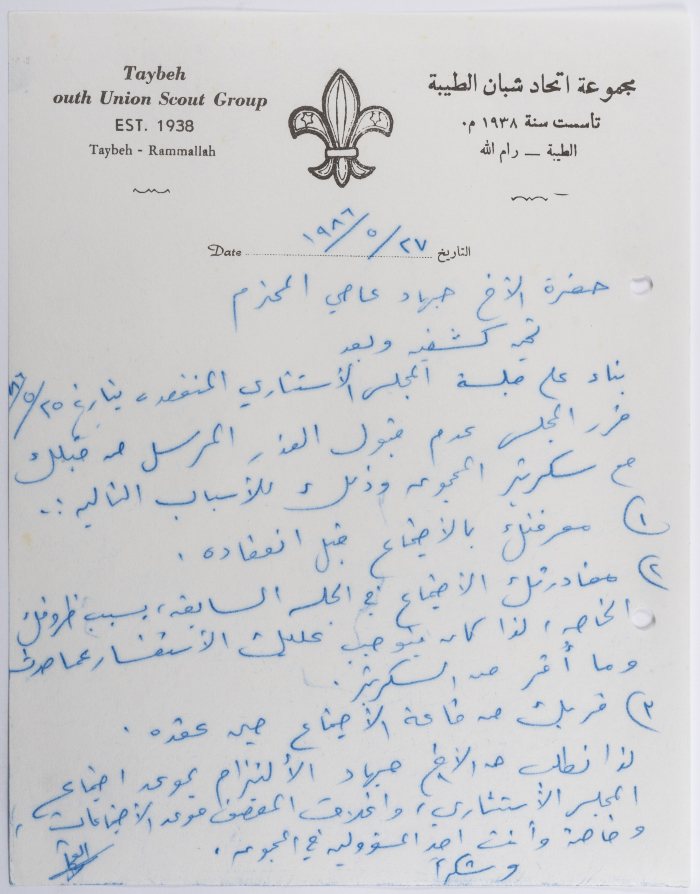 Taybeh
outh Union Scout Group
EST. 1938
Taybeh - Rammallah
مجموعة اتحاد شبان الطيبة
تأسست سنة ١٩٣٨ م.
الطيبة — رام الله
Date ١٩٨٦/٥/٢٧ التاريخ
حضرة الأخ جهاد عاصي المحترم
تحيه كشفيه وبعد
بناء على جلسة المجلس الأستشاري المنعقده بتاريخ ٨٦/٥/٢٥
قرر المجلس عدم قبول العذر المرسل من قبلك
مع سكرتير المجموعه وذلك للأسباب التاليه :.
١) معرفتك بالأجتماع قبل انعقاده .
٢) مغادرتك الأجتماع في الجلسه السابقه، بسبب ظروفك
الخاصه، لذا كان يتوجب عليك الأستفسار عما حدث
وما أقر من السكرتير .
٣) قربك من قاعة الأجتماع حين عقده .
لذا نطلب من الأخ جهاد الألتزام بموعد اجتماع
المجلس الأستشاري، و المجلس موعد الأجتماعات ،
وخاصة وأنت احد المسؤولين في المجموعه .
وشكراً